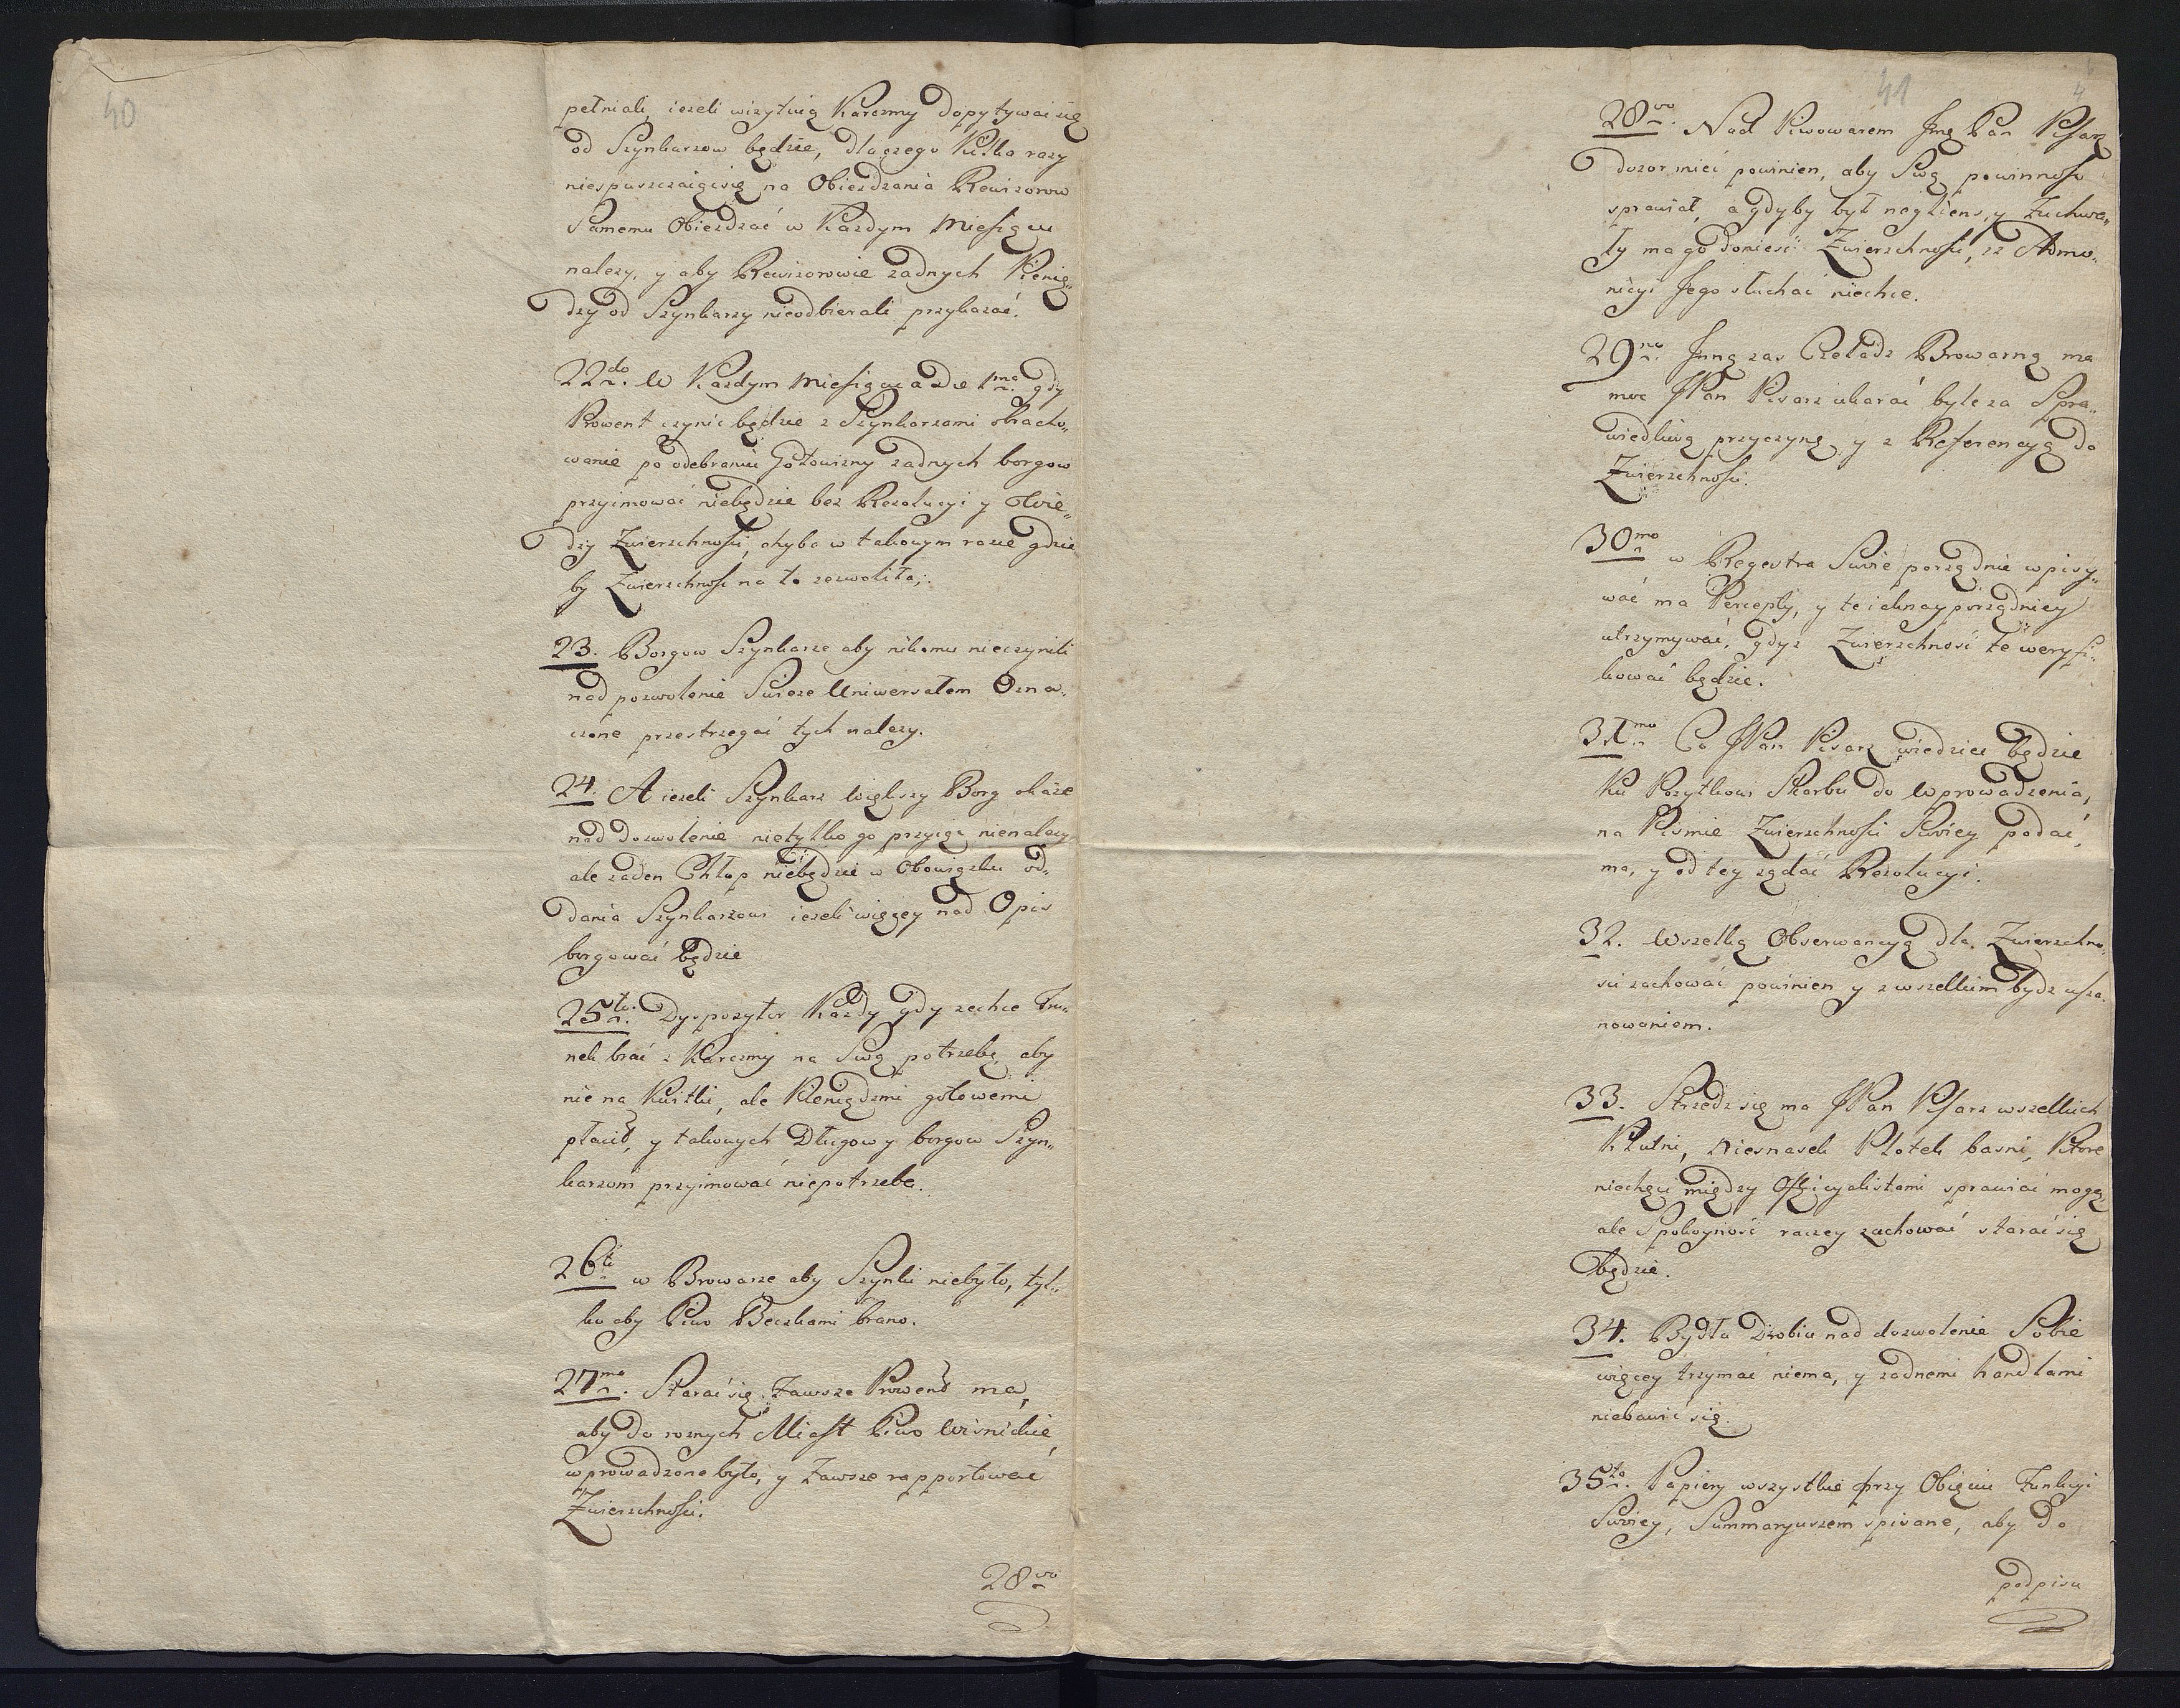 40
pełniali, iezeli wizytuią Karczmy dopytywaisię
od Szynkarzow będzie, dlaczego Kilka razy
niespuszczaiącsię na Obiezdzania Rewizorow
Samemu Obiezdzać w Kazdym Miesiącu
nalezy, y aby Rewizorowie zadnych Pienią„
dzy od Szynkarzy nieodbierali przykazać.
22do. W Kazdym Miesiącu a die 1ma gdy
Prowent czynić będzie z Szynkarzami obracho„
wanie po odebraniu Gotowizny zadnych borgow
przyimować niebędzie bez Rezolucyi y Wie„
dzy Zwierzchności, chyba w takowym razie gdzie
by Zwierzchność na to zezwoliła;
23. Borgow Szynkarze aby nikomu nieczynili
nad pozwolenie Swieze Uniwersałem Ozna„
czone przestrzegać tych nalezy.
24. A iezeli Szynkarz większy Borg okaze
nad dozwolenie nietylko go przyiąć nienalezy
ale zaden Chłop niebędzie w Obowiązku od„
dania Szynkarzowi iezeli więcey nad Opis
borgować będzie
25to. Dyspozytor Kazdy gdy zechce Tru„
nek brać z Karczmy na Swą potrzebę, aby
nie na Kwitki, ale Pieniądzmi gotowemi
płacił, y takowych Długow y borgow Szyn„
karzom przyimować niepotrzeba.
26ti w Browarze aby Szynku niebyło, tyl„
ko aby Piwo Beczkami brano.
27mo. Starać się Zawsze Prowent ma,
aby do roznych Miast Piwo Wisnickie
wprowadzone było, y Zawsze rapportować
Zwierzchności.
28vo
41
4
28vo. Nad Piwowarem Jmć Pan Pisarz
dozor mieć powinien, aby Swą powinność
sprawiał, a gdyby był negliens, y Zuchwa„
ły ma go donieść Zwierzchności, iz Admo„
nicyi Jego słuchać niechce.
29no. Inną zas Czeladz Browarną ma
moc JPan Pisarz ukarać byle za Spra„
wiedliwą przyczyną y z Referencyą do
Zwierzchności.
30mo w Regestra Swoie porządnie wpisy„
wać ma Percepty, y te iaknayporządniey
utrzymywać, gdyz Zwierzchność te weryfi„
kować będzie.
31mo Co JPan Pisarz wiedzieć będzie
Ku Pozytkowi Skarbu do Wprowadzenia,
na Pismie Zwierzchności Swoiey podać
ma, y od tey ządać Rezolucyi.
32. Wszelką Obserwancyą dla Zwierzchno„
ści zachować powinien y z wszelkim bydz usza„
nowaniem.
33. Strzedz się ma JPan Pisarz wszelkich
Kłutni, Niesnasek Plotek basni, Ktore
niechęci między Officyalistami sprawiać mogą
ale Spokoyność raczey zachować starać się
będzie.
34. Bydła Drobiu nad dozwolenie Sobie
więcey trzymać niema, y zadnemi handlami
niebawić się.
35to. Papiery wszystkie przy Obięciu Funkcyi
Swoiey, Summaryuszem spisane, aby do
podpisu